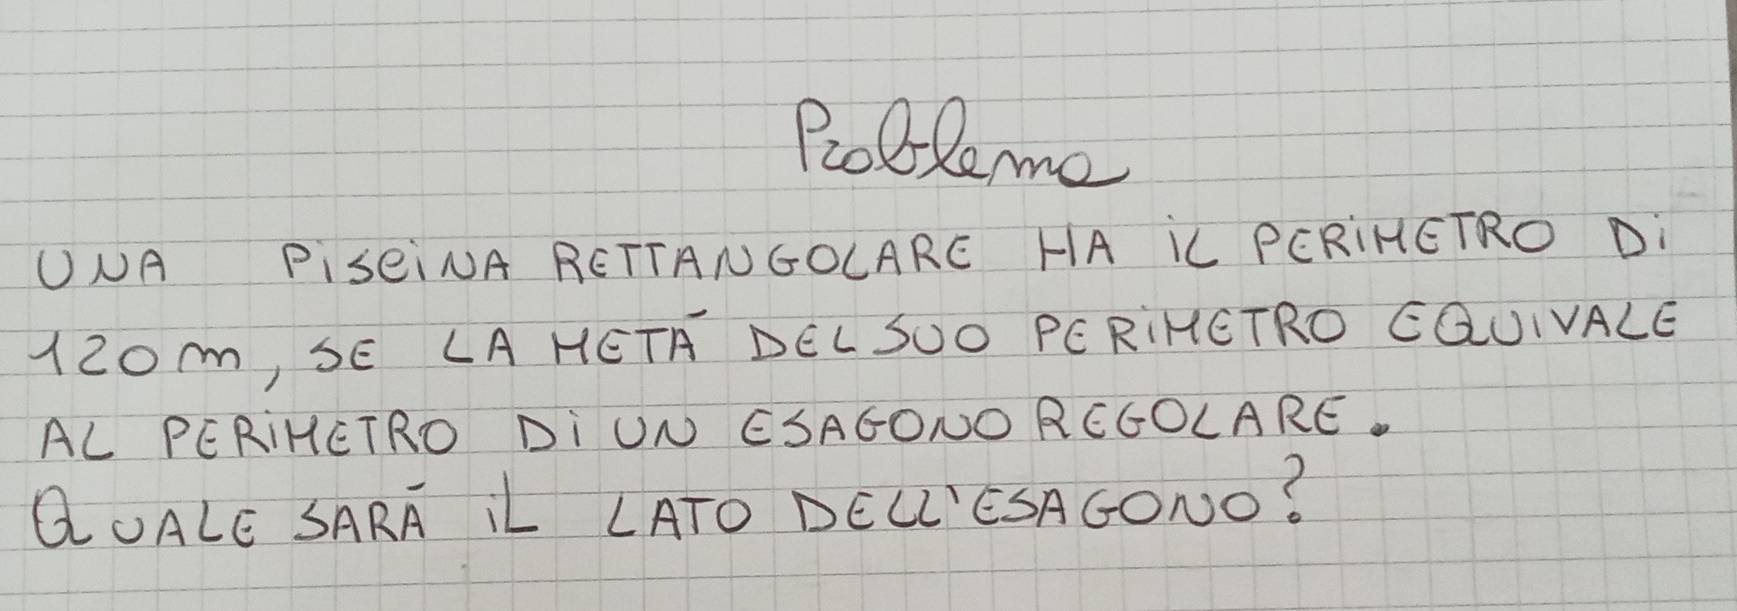 Problema
UNA PISCINA RETTANGOLARE HA IL PERIMETRO DI
120 m, SE LA METÀ DEL SUO PERIMETRO EQUIVALE
AL PERIMETRO DI UN ESAGONO REGOLARE.
QUALE SARÀ IL LATO DELL'ESAGONO?